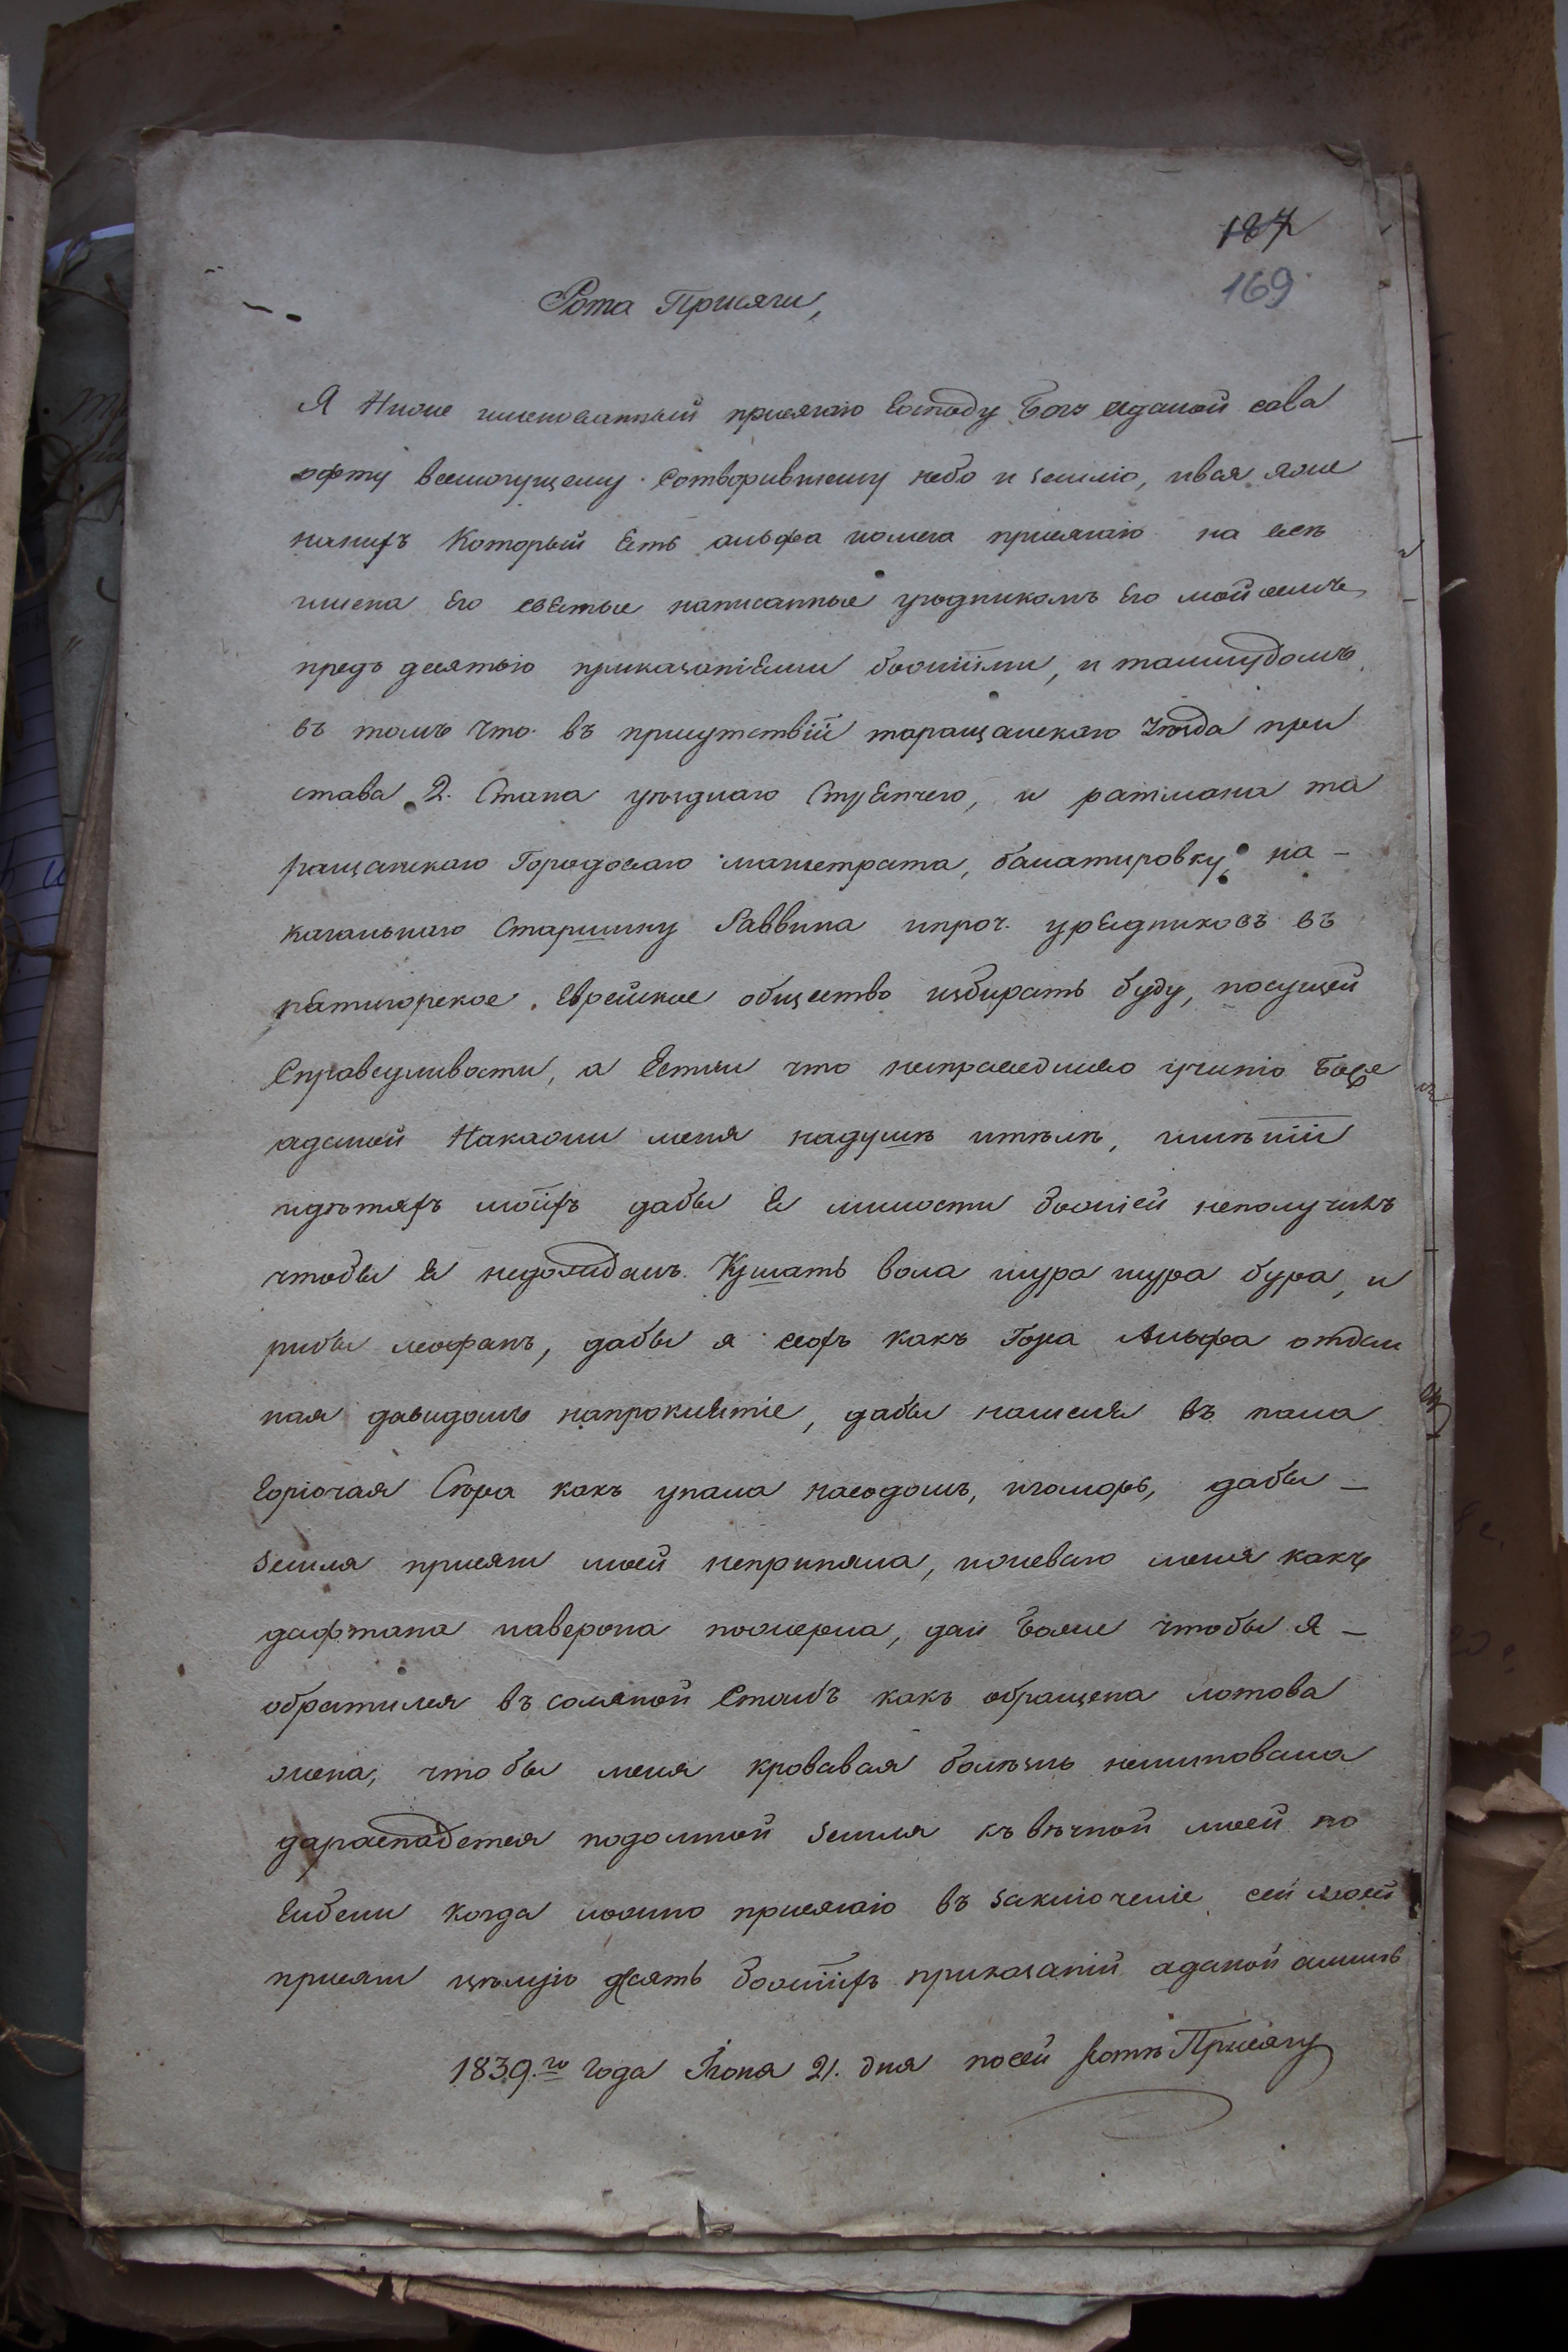 187
169
Рота Присяги,
Я Ниже именованный присягаю Господу Богу Аданой сава
офту всемогущему Сотворившему небо и землю, ився яже
нанихъ Который Есть альфа иомега присягаю на всѣ
имена Его свѣтые написанные урядникомъ Его мойсемъ
предъ десятью приказаніями божіими, и талмудомъ
въ томъ что въ присутствіи таращанскаго уѣзда при
става 2. Стана уѣзднаго Стряпчего, и ратмана та
ращанскаго Городоваго магистрата, балатировку на-
кагальнаго Старшину Раввина ипроч. урядниковъ въ
пятигорское Еврейское общество избирать буду, посущей
Справедливости, а Естли что несправедливо учиню Боже
аданой Накажи меня надушѣ итѣлѣ, имѣніи
идѣтяхъ моихъ дабы я милости божіей неполучилъ
чтобы я недождалъ Кушать вола шура бура, и
рибы леофанъ, дабы я какъ Гора Альфа отдан
ная давидомъ напроклятіе, дабы наменя въ пала
Горючая Сѣра какъ упала насодомъ, игоморъ, дабы-
земля присяги моей непринила, меня какъ
дафтана иаверона пожерла, дай Боже чтобы я-
обратился въ соляной Столбъ какъ обращена лотова
жена, что бы меня кровавая болѣзнь неминовала
дараспадется подомной земля къ вѣчной моей по
гибели когда ложно присягаю въ заключеніе сей моей
присяги цѣлую десять божіихъ приказаній аданой аминь
1839.го года Іюня 21. дня посей Ротѣ Присягу